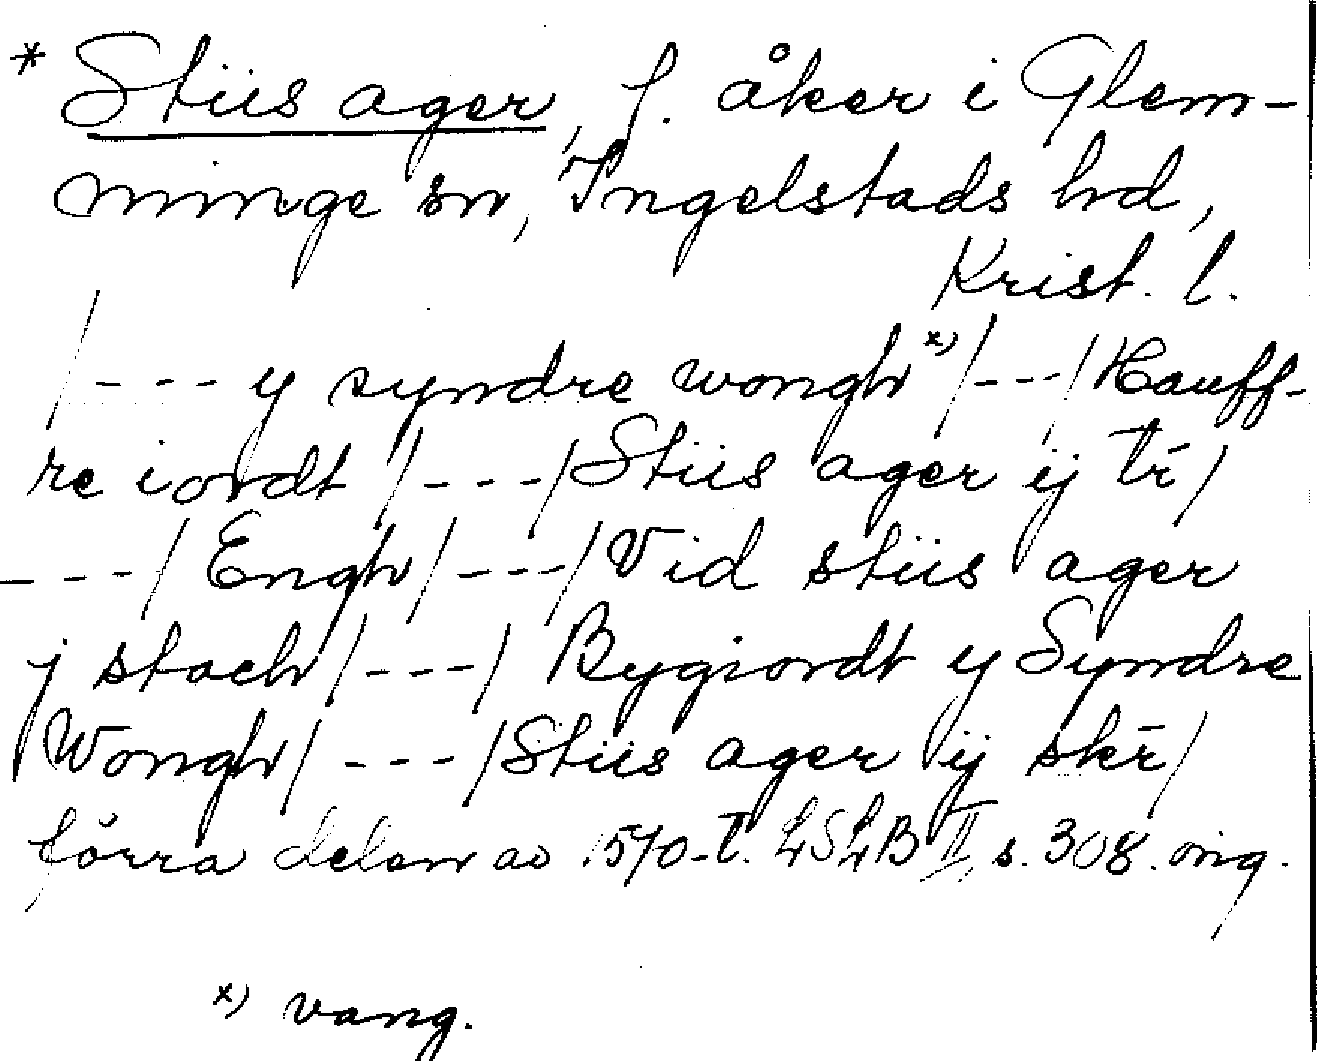 * Stiis ager, f. åker i Glem-
minge sn, Ingelstads hd,
Krist. l.
/--- y syndre wongh x) /---/ Hauff-
re iordt /---/ Stiis ager ij tr̄ /
---/ Engh /---/ Vid stiis ager
j stach /---/ Bygiordt y Syndre
Wongh /---/ Stiis ager ij skr̄ /
förra delen av 1570-t. LSLB II, s. 308. orig.
x) vang.